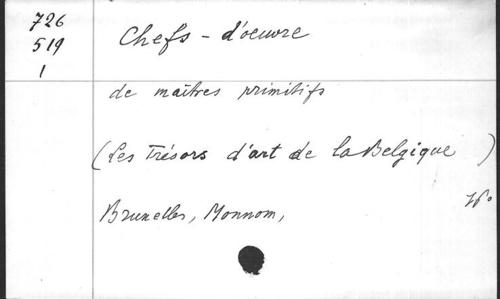 726
519
1
Chefs - d'oeuvre
de maîtres primitifs
(Les Trésors d'art de la Belgique)
Bruxelles, Monnom,